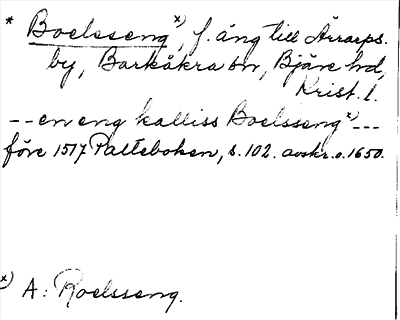 * Boelsseng x), f. äng till Ärrarps
by, Barkåkra sn, Bjäre hd,
Krist. l.
-- en eng kalliss Boelsseng x) ---
före 1517 Palteboken, s. 102. avskr. o. 1650.
x) A: Roelsseng.